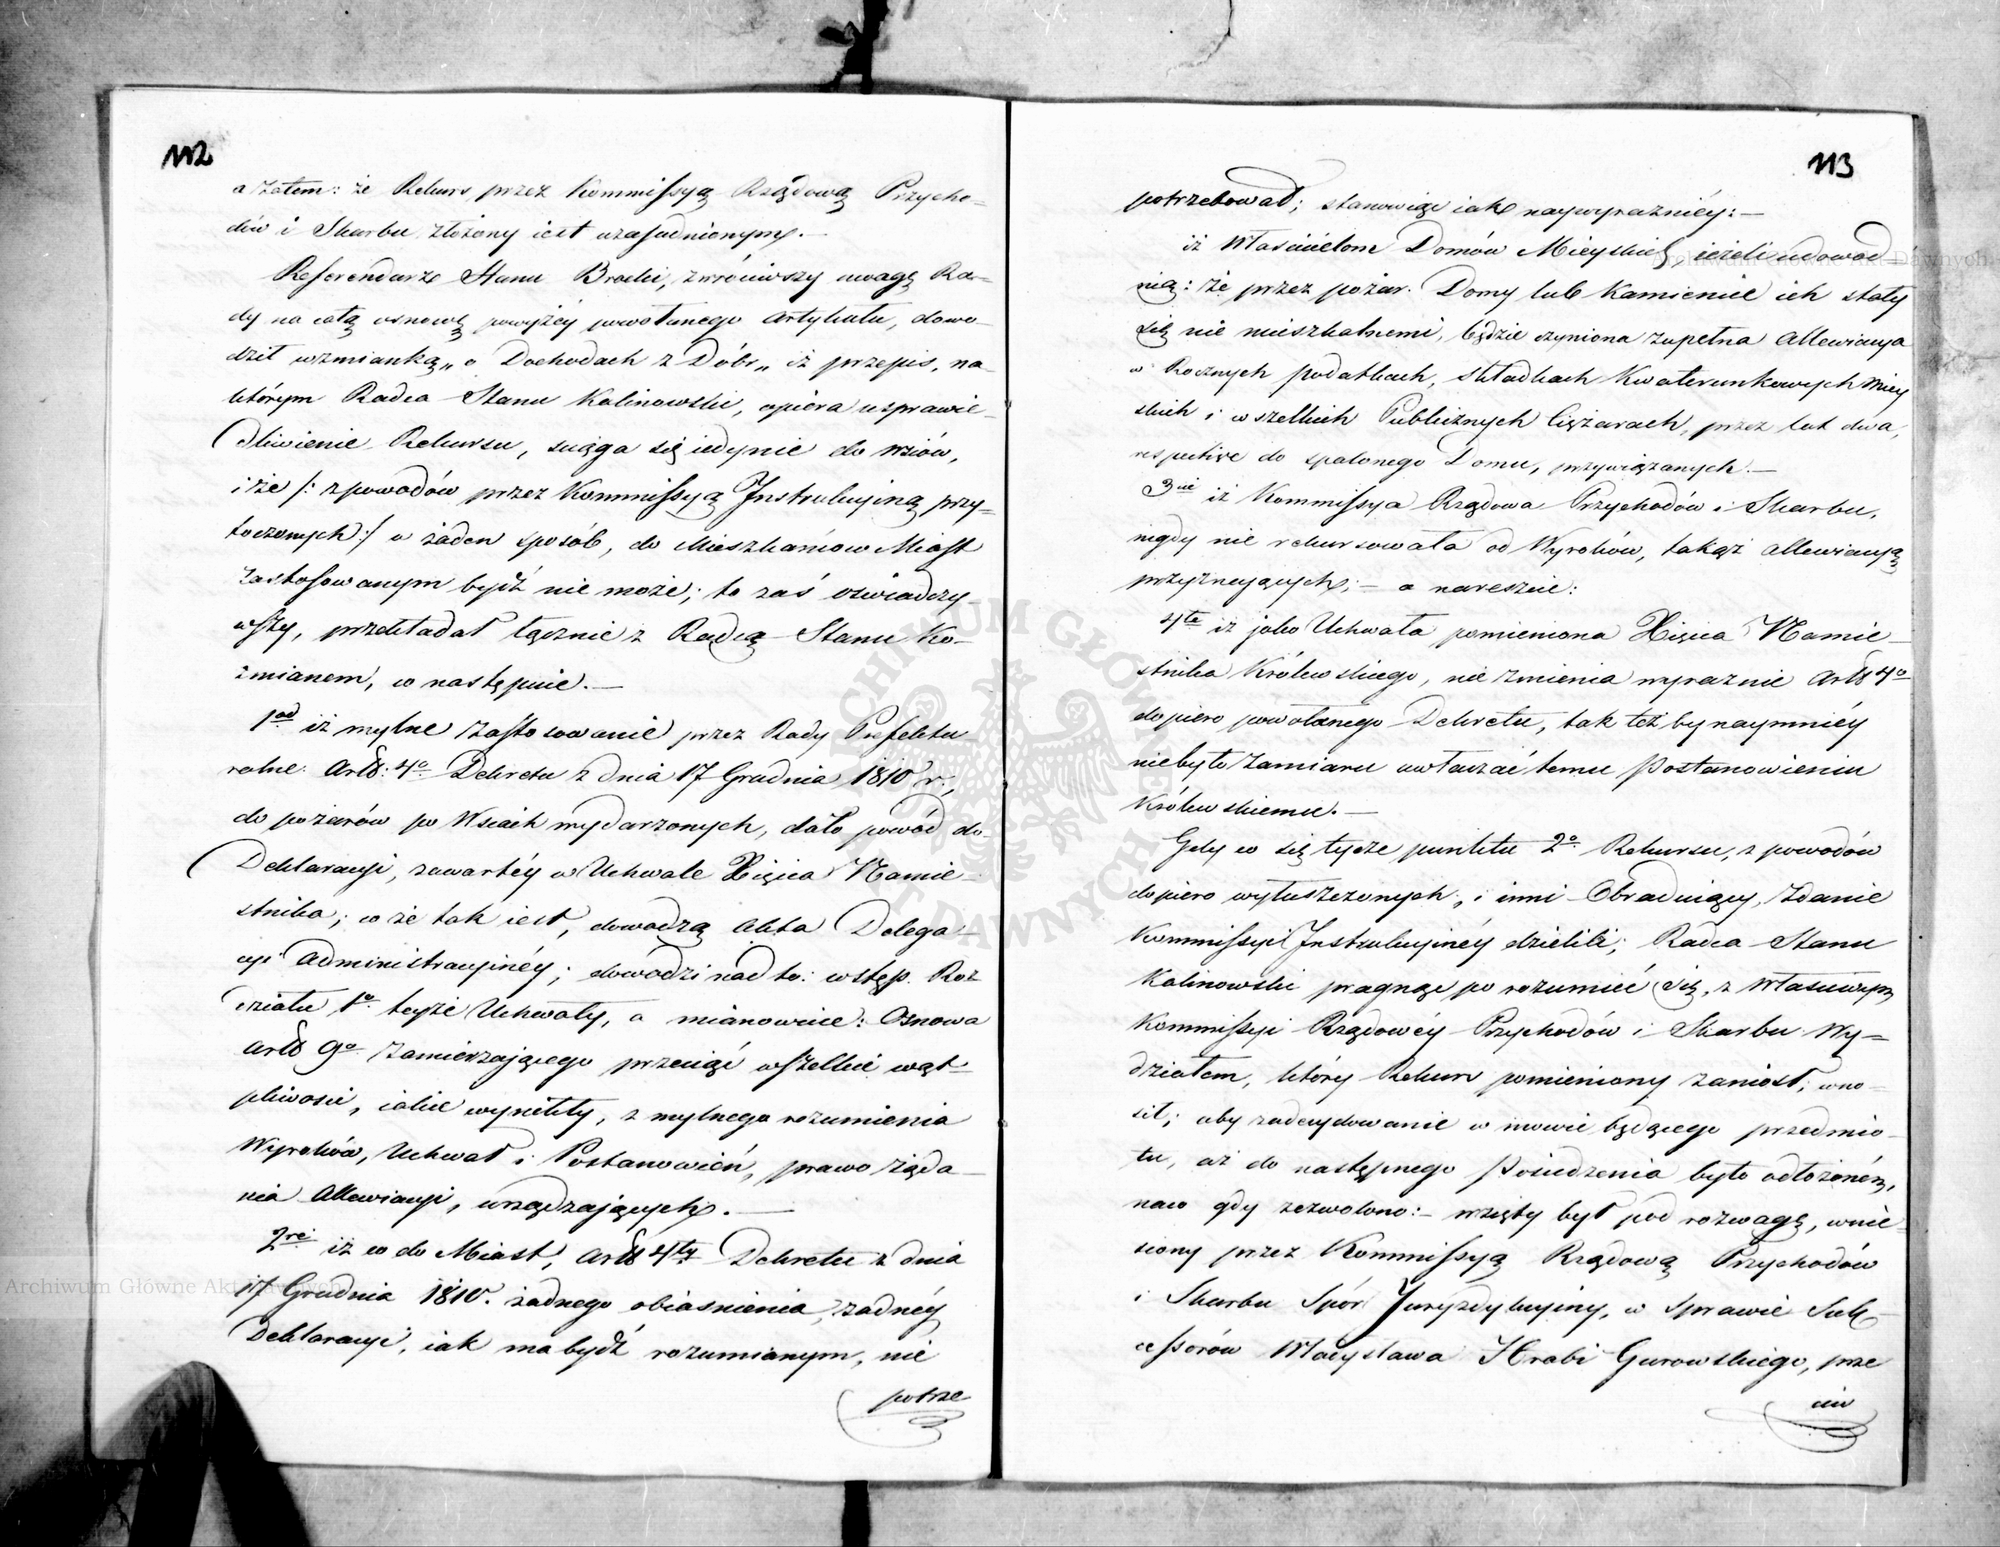 112
a zatem: że Rekurs przez Kommissyą Rządową Przycho-
dów i Skarbu złożony iest uzasadnionym.—
Referendarz Stanu Brocki, zwróciwszy uwagę Ra-
dy na całą osnowę powyżéy powołanego Artykułu, dowo-
dził wzmianką „o Dochodach z Dóbr„ iż przepis, na
którym Radca Stanu Kalinowski, opiera usprawie-
dliwienie Rekursu, sciąga się iedynie do Wsiów,
i że /: z powodów przez Kommissyą Instrukcyiną przy-
toczonych :/ w żaden sposób, do Mieszkańców Miast
zastosowanym bydź nie może; to zaś oświadczy
wszy, przekładał łącznie z Radcą Stanu Ko-
źmianem, co następuie.—
1od iż mylne zastosowanie przez Rady Prefektu
ralne Artł: 4o Dekretu z dnia 17 Grudnia 1810 r.,
do pożarów po Wsiach wydarzonych, dało powód do
Deklaracyi, zawartéy w Uchwale Xięcia Namie-
stnika; co że tak iest, dowodzą Akta Delega-
cyi Administracyinéy; dowodzi nad to: wstęp Roz
działu 1o teyże Uchwały, a mianowicie: Osnowa
Artł 9o zamierzaiącego przeciąć wszelkie wąt-
pliwości, iakie wynikły, z mylnego rozumienia
Wyroków, Uchwał i Postanowień, prawo żąda-
nia Allewiacyi, urządzaiących.—
2re iż co do Miast, Artł 4ty Dekretu z dnia
17 Grudnia 1810. żadnego obiaśnienia, żadnéy
Deklaracyi, iak ma bydź rozumianym, nie
potrze
113
potrzebował; stanowiąc iak naywyraźniéy:—
iż Właścicielom Domów Mieyskich, ieżeli udowod-
nią: że przez pożar Domy lub Kamienice ich stały
się nie mieszkalnemi, będzie czyniona zupełna Allewiacya
w Rocznych podatkach, składkach Kwaterunkowych Miey
skich i wszelkich Publicznych Ciężarach, przez lat dwa,
respective do spalonego Domu, przywiązanych.—
3cie iż Kommissya Rządowa Przychodów i Skarbu,
nigdy nie rekursowała od Wyroków, takąż Allewiacyą
przyznaiących;— a nareszcie:
4te iż iako Uchwała pomieniona Xięcia Namie-
stnika Królewskiego, nie zmienia wyraźnie Artł 4o
dopiero powołanego Dekretu, tak też by naymniéy
nie było zamiaru uwłaczać temu Postanowieniu
Królewskiemu.—
Gdy co się tycze punktu 2o Rekursu, z powodów
dopiero wyłuszczonych, i inni Obraduiący, zdanie
Kommissyi Instrukcyinéy dzielili; Radca Stanu
Kalinowski pragnąc porozumieć się, z Właściwym
Kommissyi Rządowéy Przychodów i Skarbu Wy-
działem, który Rekurs pomieniony zaniósł, wno-
sił; aby zadecydowanie w mowie będącego przedmio-
tu, aż do następnego Posiedzenia było odłożoném,
na co gdy zezwolono:— wzięty był pod rozwagę, wnie-
siony przez Kommissyą Rządową Przychodów
i Skarbu Spór Juryzdykcyiny, w Sprawie Suk-
cessorów Władysława Hrabi Gurowskiego, prze
ciw
Archiwum Główne Akt Dawnych
Archiwum Główne Akt Dawnych
ARCHIWUM GŁÓWNE AKT DAWNYCH